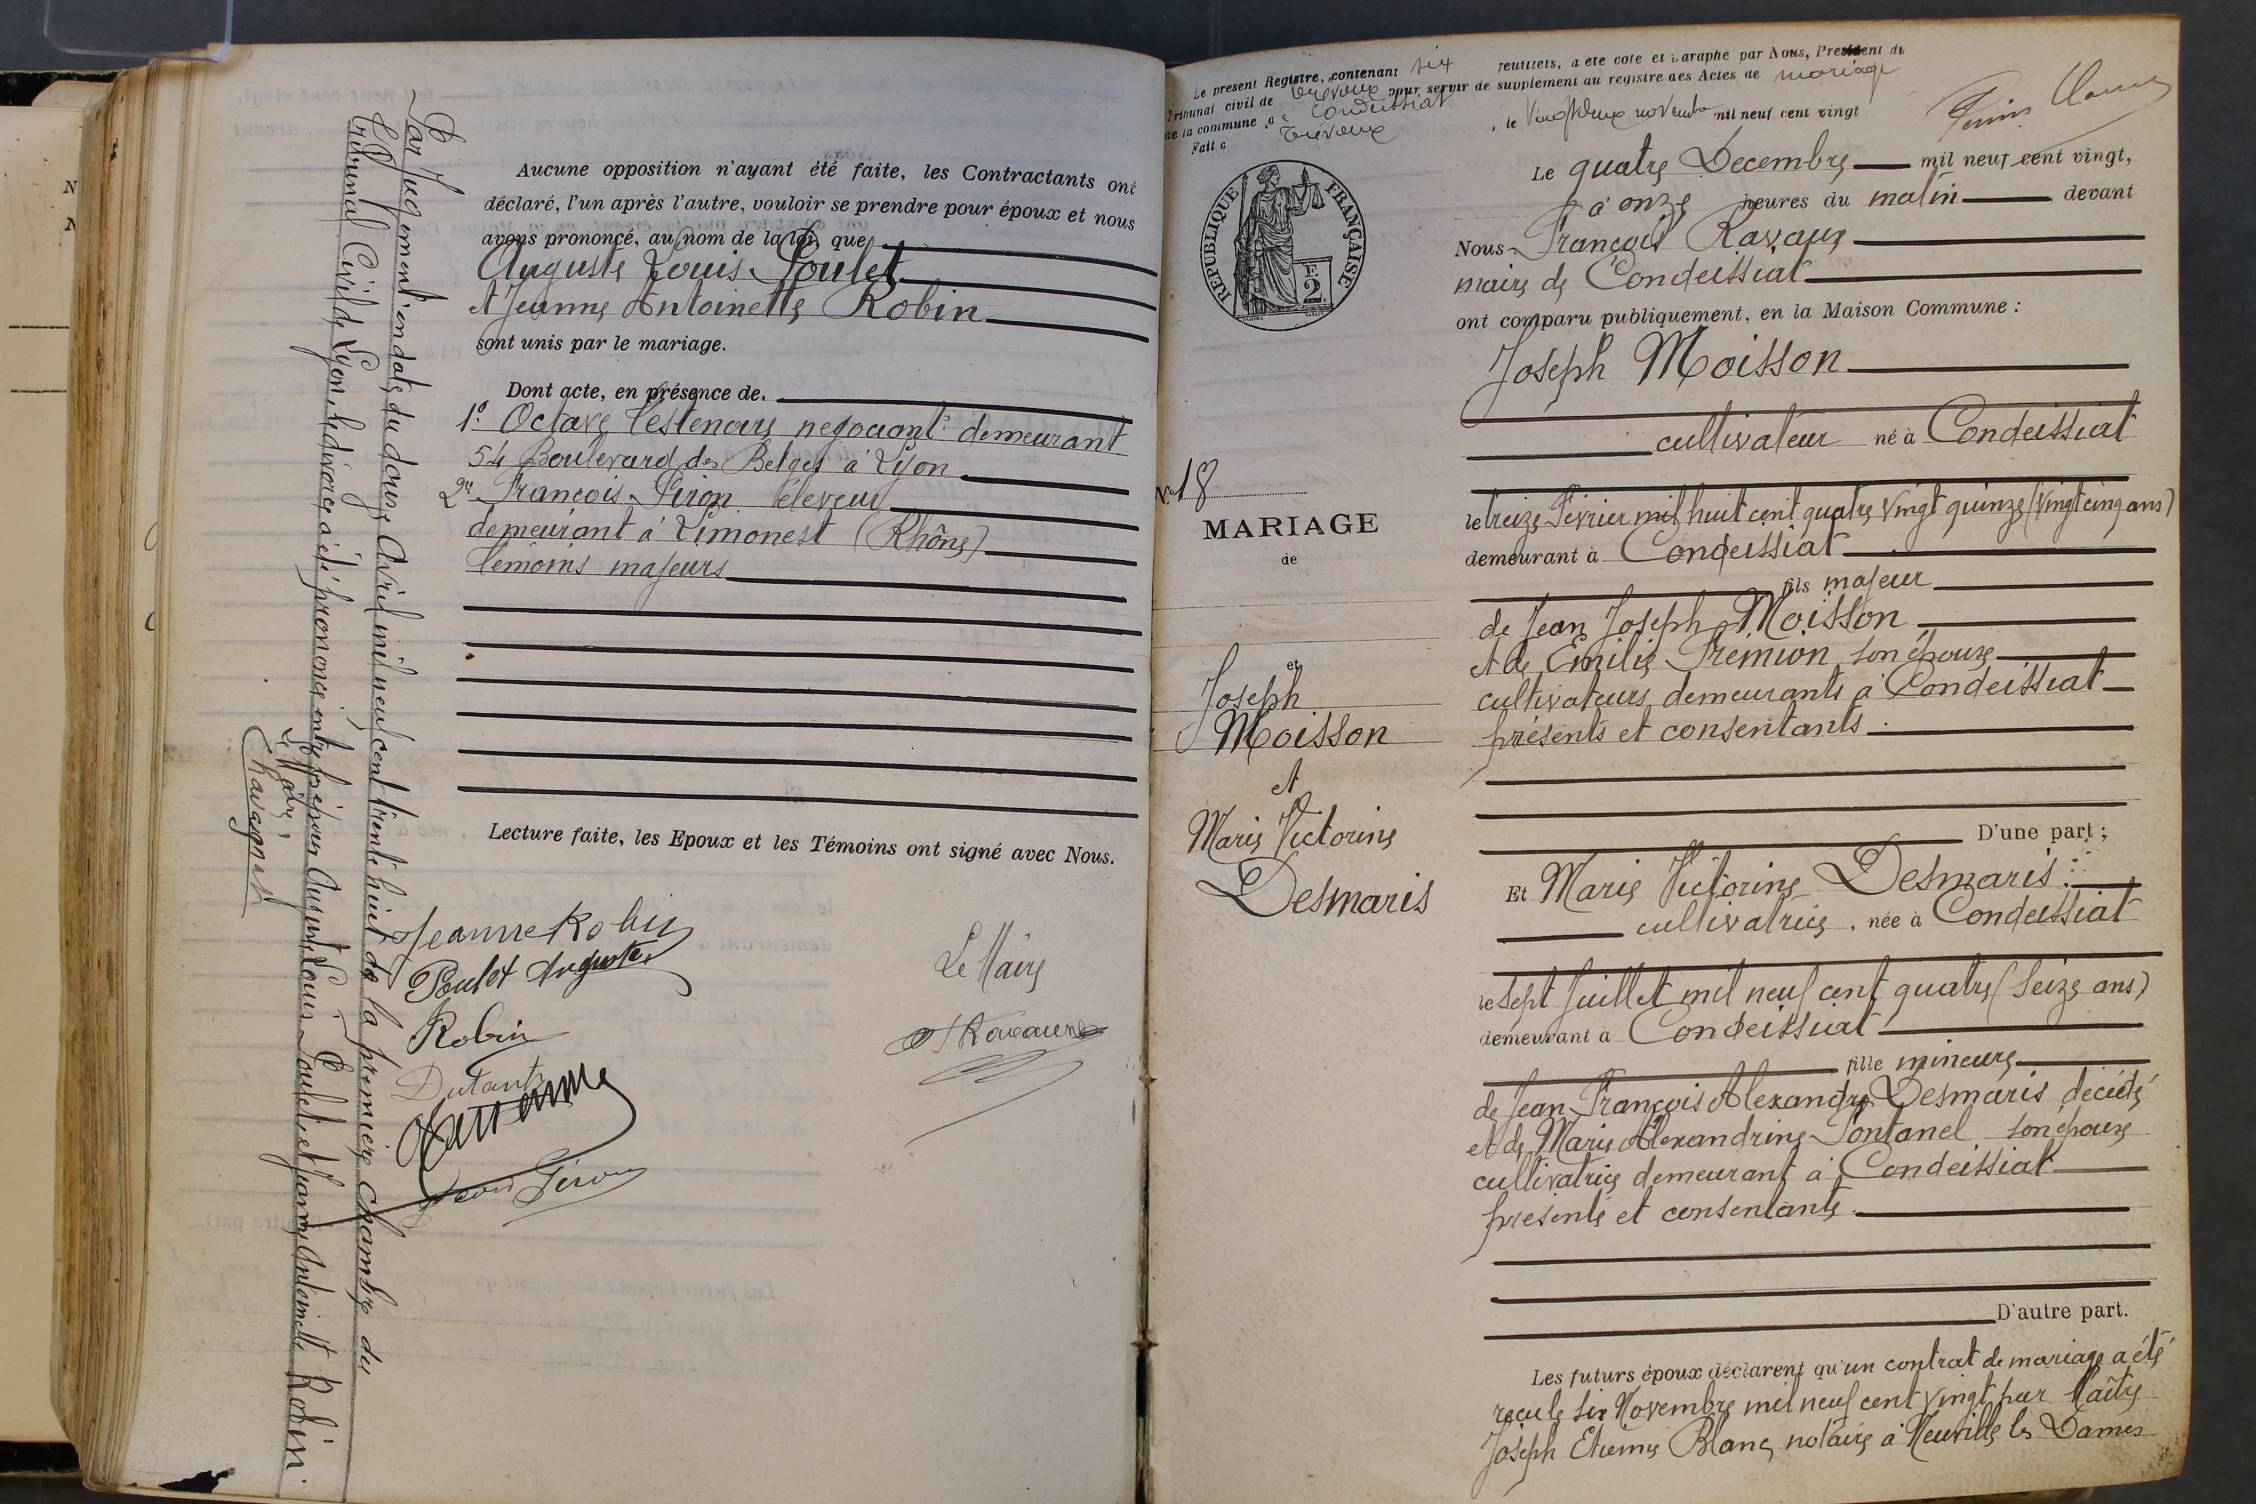 Par Jugement en date du douze Avril mil neuf cent trente huit de la première chambre du
tribunal Civil de Lyon, le divorce a été prononcé entre les époux Auguste Louis Poulet et Jeanne Antoinette Robin.
Le Maire,
Chavagnat
Aucune opposition n'ayant été faite, les Contractants ont
déclaré, l'un après l'autre, vouloir se prendre pour époux et nous
avons prononcé, au nom de la loi, que
Auguste Louis Poulet
et Jeanne Antoinette Robin
sont unis par le mariage.
Dont acte, en présence de.
1º Octave négociant demeurant
54 Boulevard des Belges à Lyon
2º François Piron éleveur
demeurant à Limonest (Rhône)
témoins majeurs
Lecture faite, les Epoux et les Témoins ont signé avec Nous.
Jeanne Robin
Poulet Auguste
Le Maire
Robin
F Ravaux
Dutant
Le présent Registre, contenant six feuillets, a été coté et paraphé par Nous, Président du
Tribunal civil de Trévoux pour servir de supplément au registre des Actes de mariage
de la commune de Condeissiat
Fait à Trévoux, le vingt deux novembre mil neuf cent vingt
REPUBLIQUE FRANÇAISE
2 F.
Le quatre Decembre mil neuf cent vingt,
à onze heures du matin devant
Nous François Ravaux
maire de Condeissiat
ont comparu publiquement, en la Maison Commune :
Joseph Moisson
cultivateur né à Condeissiat
le treize Février mil huit cent quatre vingt quinze (vingt cinq ans)
demeurant à Condeissiat
fils majeur
de Jean Joseph Moisson
et de Emilie Premion son épouse
cultivateurs demeurants à Condeissiat
présents et consentants.
D'une part ;
Nº 18
MARIAGE
de
et
Joseph
Moisson
et
Marie Victorine
Desmaris
Et Marie Victorine Desmaris
cultivatrice, née à Condeissiat
le sept Juillet mil neuf cent quatre (seize ans)
demeurant à Condeissiat
fille mineure
de Jean François Alexandre Desmaris décédé
et de Marie Alexandrine Pontanel son épouse
cultivatrice demeurant à Condeissiat
présente et consentante.
D'autre part.
Les futurs époux déclarent qu'un contrat de mariage a été
reçu le six Novembre mil neuf cent vingt par Maître
Joseph Etienne Blanc notaire à Neuville les Dames